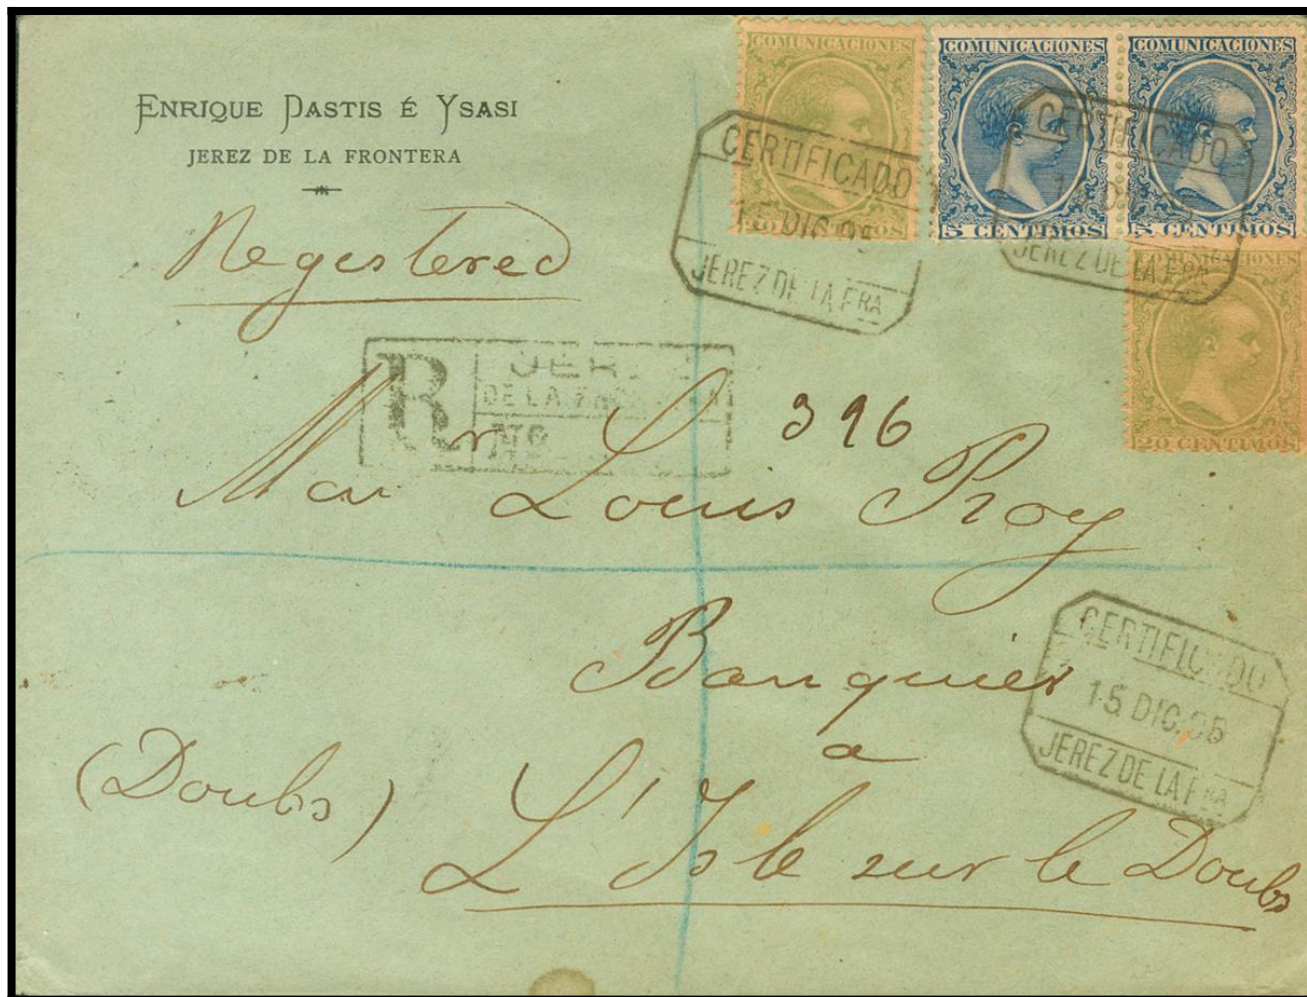 ENRIQUE DASTIS É YSASI
JEREZ DE LA FRONTERA
Registered
COMUNICACIONES
20 CENTIMOS
COMUNICACIONES
5 CENTIMOS
COMUNICACIONES
5 CENTIMOS
COMUNICACIONES
20 CENTIMOS
CERTIFICADO
15 DIC
JEREZ DE LA FRA
CERTIFICADO
JEREZ DE LA FRA
R
DE LA
Nº
396
Louis Roy
Banquier
a
(Doubs)
L'Isle sur le Doubs
CERTIFICADO
15 DIC. 95
JEREZ DE LA FRA